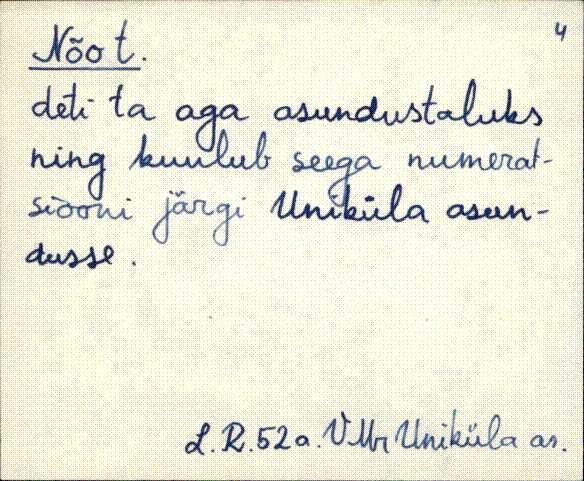 4
Nõo t.
deti ta aga asundustaluks
ning kuulub seega numerat-
siooni järgi Uniküla asun-
dusse.
L.R.52a. VMr Uniküla as.